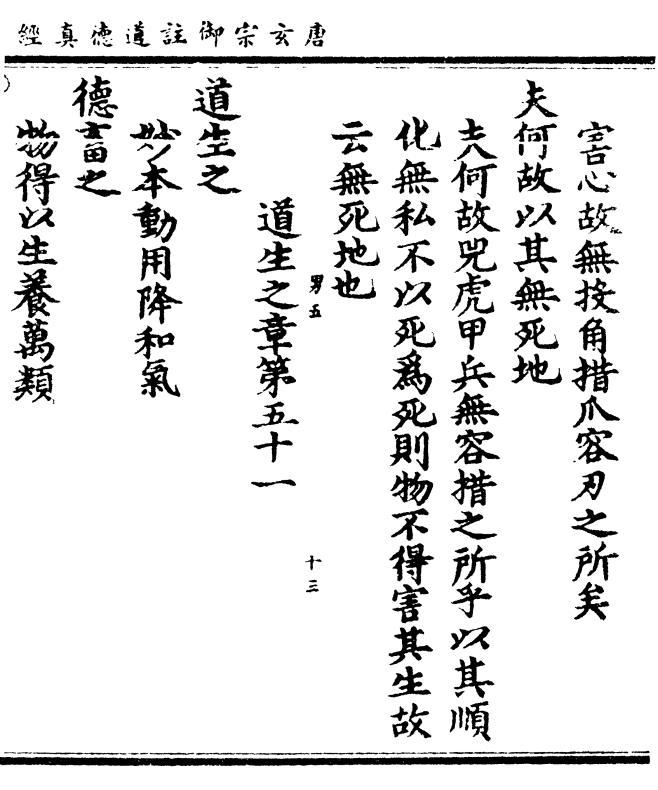 唐玄宗御註道德真經
害心故無投角措爪容刃之所矣
夫何故以其無死地
夫何故兕虎甲兵無容措之所乎以其順
化無私不以死為死則物不得害其生故
云無死地也
男五
十三
道生之章第五十一
道生之
妙本動用降和氣
德畜之
物得以生養萬類